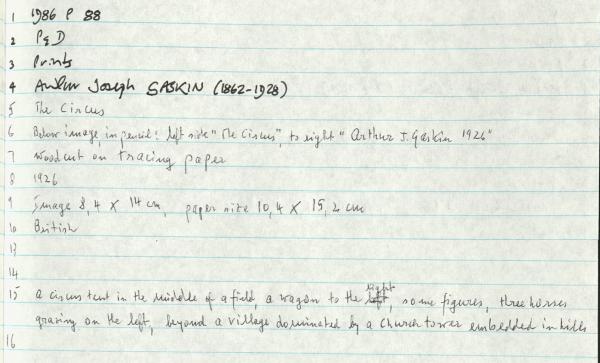 1 1986 P 88
2 P&D
3 Prints
4 Arthur Joseph GASKIN (1862-1928)
5 The Circus
6 Below image, in pencil: left side "The Circus", to right "Arthur J. Gaskin 1926"
7 Woodcut on tracing paper
8 1926
9 Image 8,4 X 14 cm, paper size 10,4 X 15,2 cm
10 British
13
14
right
15 a circus tent in the middle of a field, a wagon to the left, some figures, three horses
grazing on the left, beyond a village dominated by a church tower embedded in hills
16